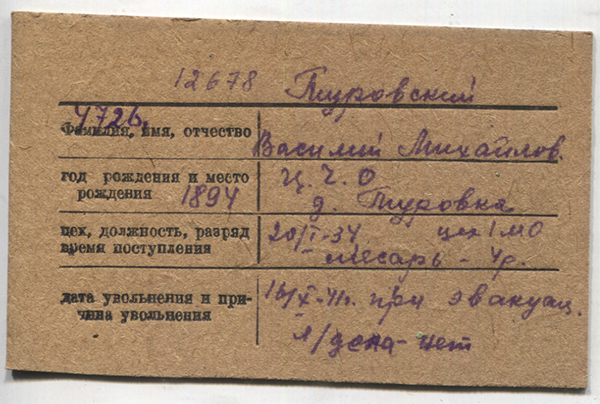 12678 Туровский
4726.
Фамилия, имя, отчество Василий Михайлов.
год рождения и место Ц.Ч.О
рождения 1894 д. Туровка
цех, должность, разряд 20/I-34 цех 1 МО
время поступления слесарь - 4р.
дата увольнения и при- 16/X-41г. при эвакуац.
чина увольнения л/дела - нет